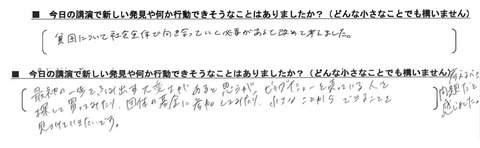 ■ 今日の講演で新しい発見や何か行動できそうなことはありましたか？（どんな小さなことでも構いません）
貧困について社会全体が向き合っていく必要があると改めて考えました。
■ 今日の講演で新しい発見や何か行動できそうなことはありましたか？（どんな小さなことでも構いません）
最初の一歩をふみ出す大変さがあると思うが、ビッグイシューを売っている人を
探して買ってみたり、団体の基金に参加してみたり、小さなことから できることを
見つけていきたいです。
問題だと
感じました。